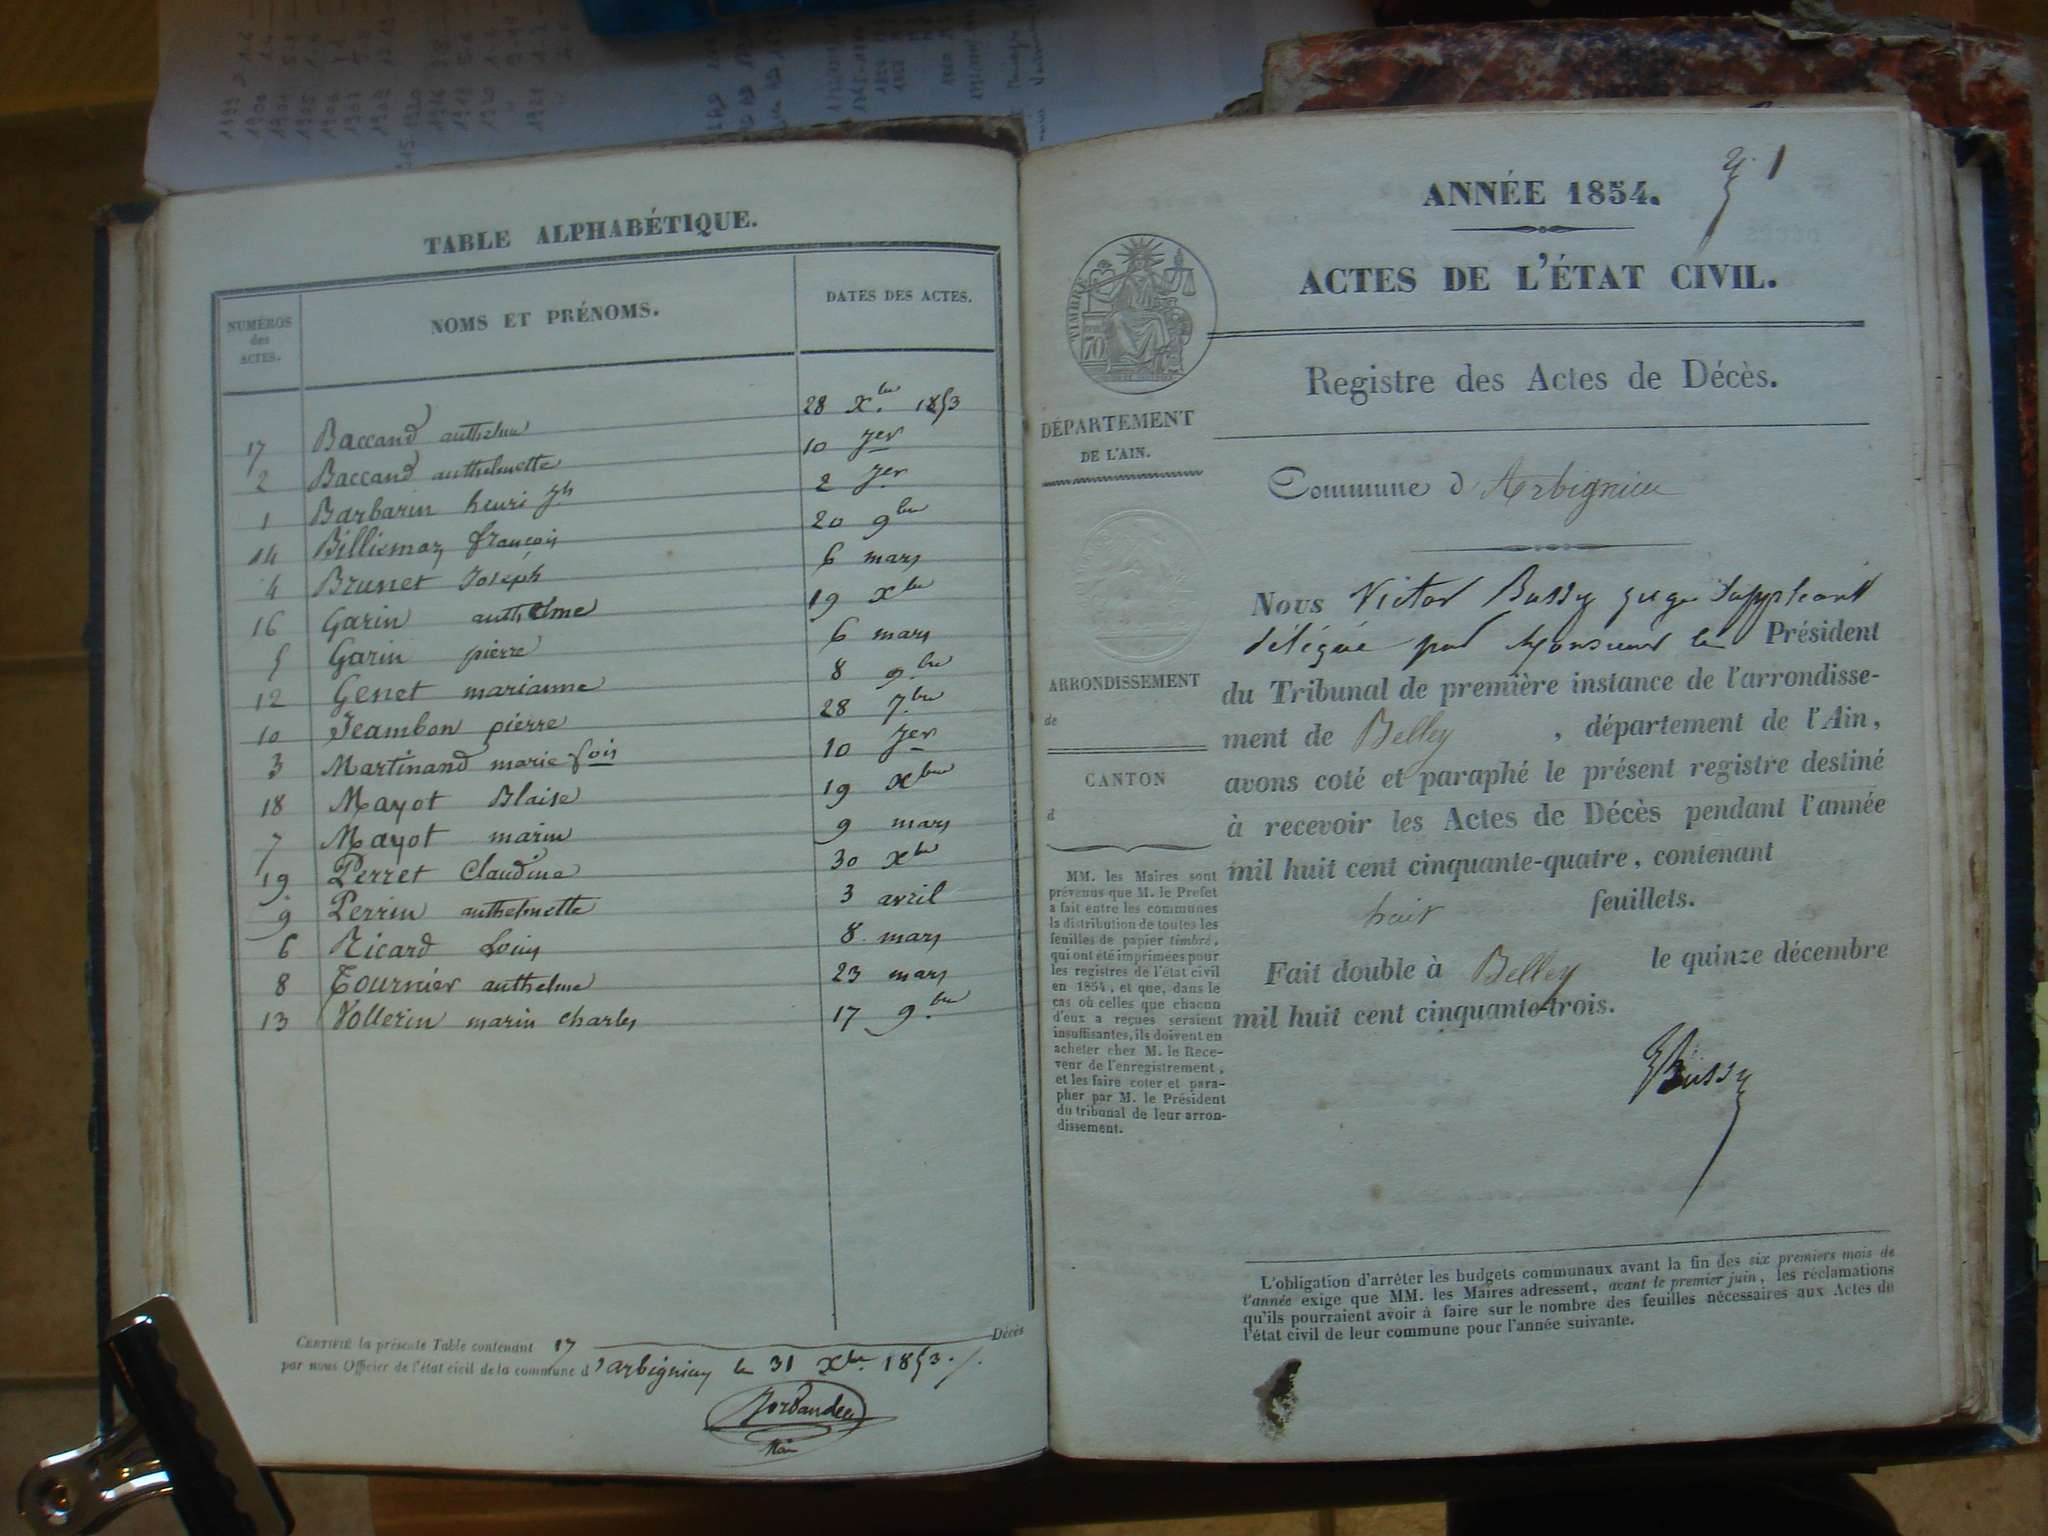 TABLE ALPHABÉTIQUE.
NUMÉROS des ACTES.
NOMS ET PRÉNOMS.
DATES DES ACTES.
17 Baccand anthelme 28 Xbre 1853
2 Baccand anthelmette 10 Jer
1 Barbarin henri Jh 2 Jer
14 Billiemaz françois 20 9bre
4 Brunet Joseph 6 mars
16 Garin anthelme 19 Xbre
5 Garin pierre 6 mars
12 Genet marianne 8 9bre
10 Jeambon pierre 28 7bre
3 Martinand marie fois 10 Jer
18 Mayot Blaise 19 Xbre
7 Mayot marin 9 mars
19 Perret Claudine 30 Xbre
9 Perrin anthelmette 3 avril
6 Ricard Louis 8 mars
8 Tournier anthelme 23 mars
13 Vollerin marin charles 17 9bre
CERTIFIÉ la présente Table contenant 17 Décès
par nous Officier de l'état civil de la commune d'arbignieu le 31 Xbre 1853.
ANNÉE 1854.
1
ACTES DE L'ÉTAT CIVIL.
TIMBRE
70
Registre des Actes de Décès.
DÉPARTEMENT
DE L'AIN.
Commune d'Arbignieu
Nous Victor Bussy juge Suppléant
délégué par Monsieur le Président
du Tribunal de première instance de l'arrondisse-
ment de Belley, département de l'Ain,
avons coté et paraphé le présent registre destiné
à recevoir les Actes de Décès pendant l'année
mil huit cent cinquante-quatre, contenant
huit feuillets.
Fait double à Belley le quinze décembre
mil huit cent cinquante-trois.
Bussy
ARRONDISSEMENT
de
CANTON
d
MM. les Maires sont
prévenus que M. le Préfet
a fait entre les communes
la distribution de toutes les
feuilles de papier timbré,
qui ont été imprimées pour
les registres de l'état civil
en 1854, et que, dans le
cas où celles que chacun
d'eux a reçues seraient
insuffisantes, ils doivent en
acheter chez M. le Rece-
veur de l'enregistrement,
et les faire coter et para-
pher par M. le Président
du tribunal de leur arron-
dissement.
L'obligation d'arrêter les budgets communaux avant la fin des six premiers mois de
l'année exige que MM. les Maires adressent, avant le premier juin, les réclamations
qu'ils pourraient avoir à faire sur le nombre des feuilles nécessaires aux Actes de
l'état civil de leur commune pour l'année suivante.